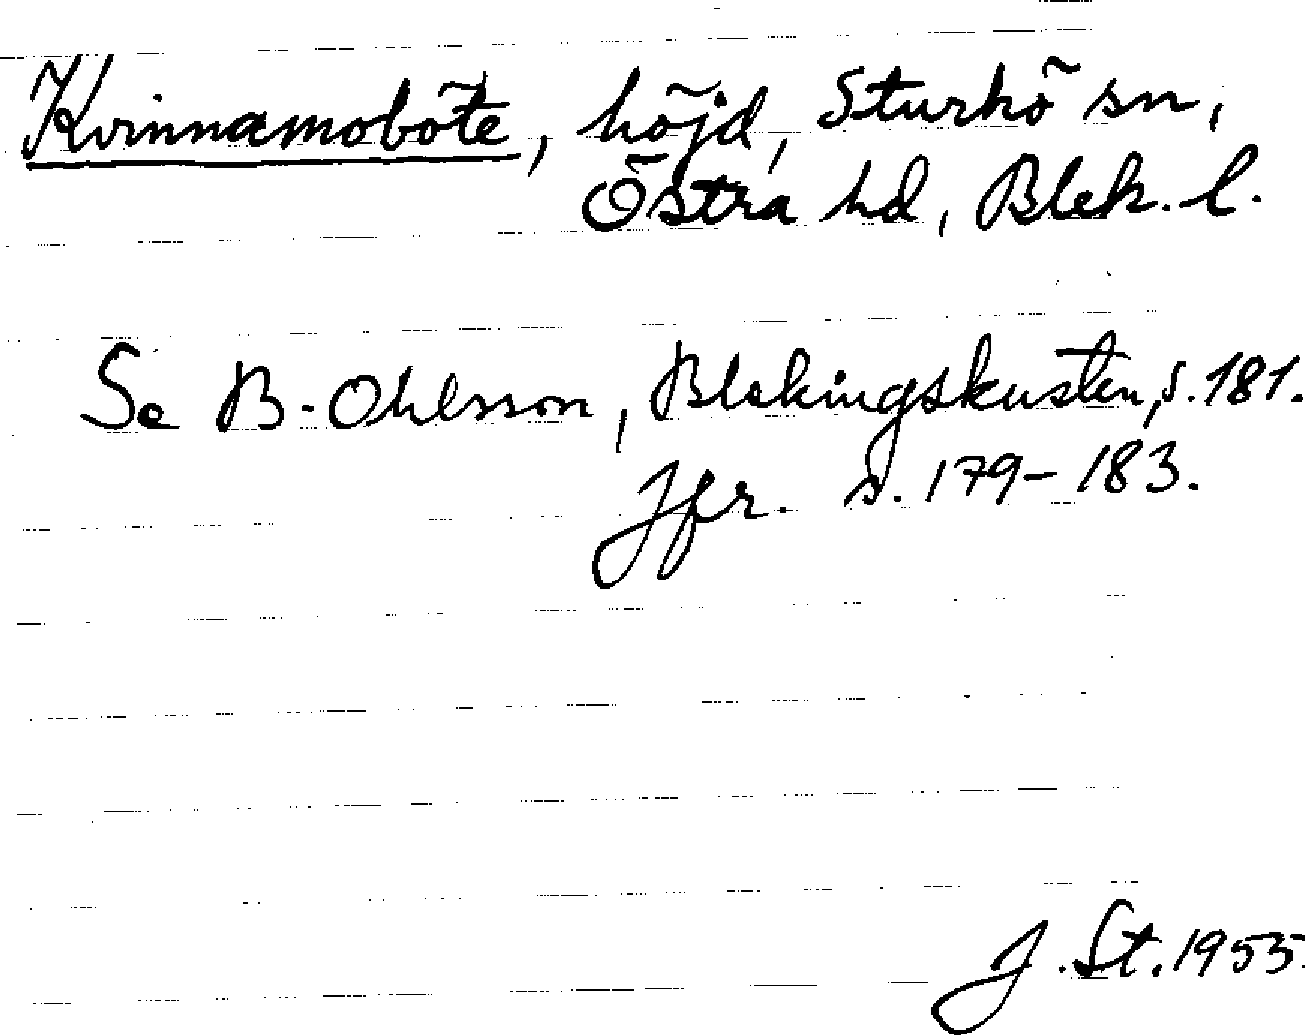 Kvinnamoböte, höjd, Sturkö sn,
Östra hd, Blek. l.
Se B. Ohlsson, Blekingskusten, s. 181.
Jfr. s. 179-183.
J. St. 1953.